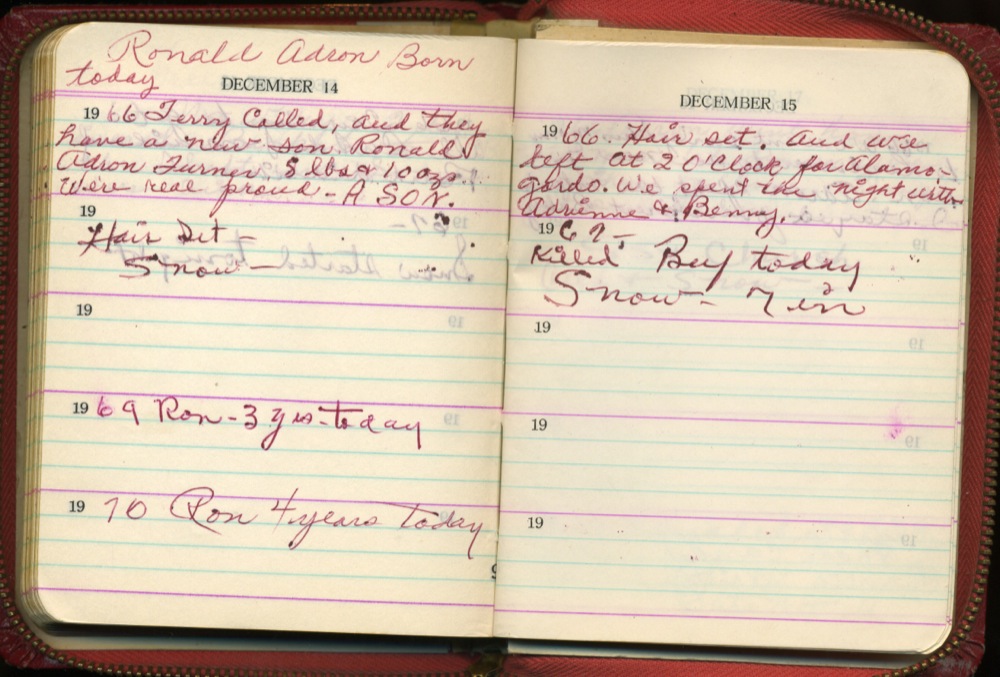 Ronald Adron Born
today
DECEMBER 14
19 66 Terry Called, and they
have a new son. Ronald
Adron Turner 8 lbs & 10 ozs.
We're real proud - A SON.
19
Hair Set -
Snow -
19
19 69 Ron - 3 yrs - today
19 70 Ron 4 years today
DECEMBER 15
19 66. Hair set. and we
left at 2 O'Clock for Alamo-
gordo. We spent the night with
Adrienne & Benny.
19 67 -
Killed Beef today
Snow - 7 in
19
19
19